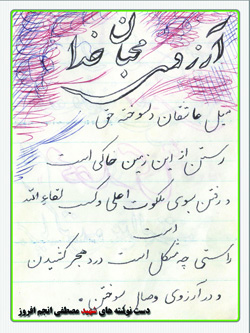 آرزوی محبان خدا
میل عاشقان دلسوخته حق
رستن از این زمین خاکی است
و رفتن بسوی ملکوت اعلی و کسب لقاء الله
است
راستی چه مشکل است درد هجر کشیدن
و در آرزوی وصال سوختن.
دست نوشته های شهید مصطفی انجم افروز